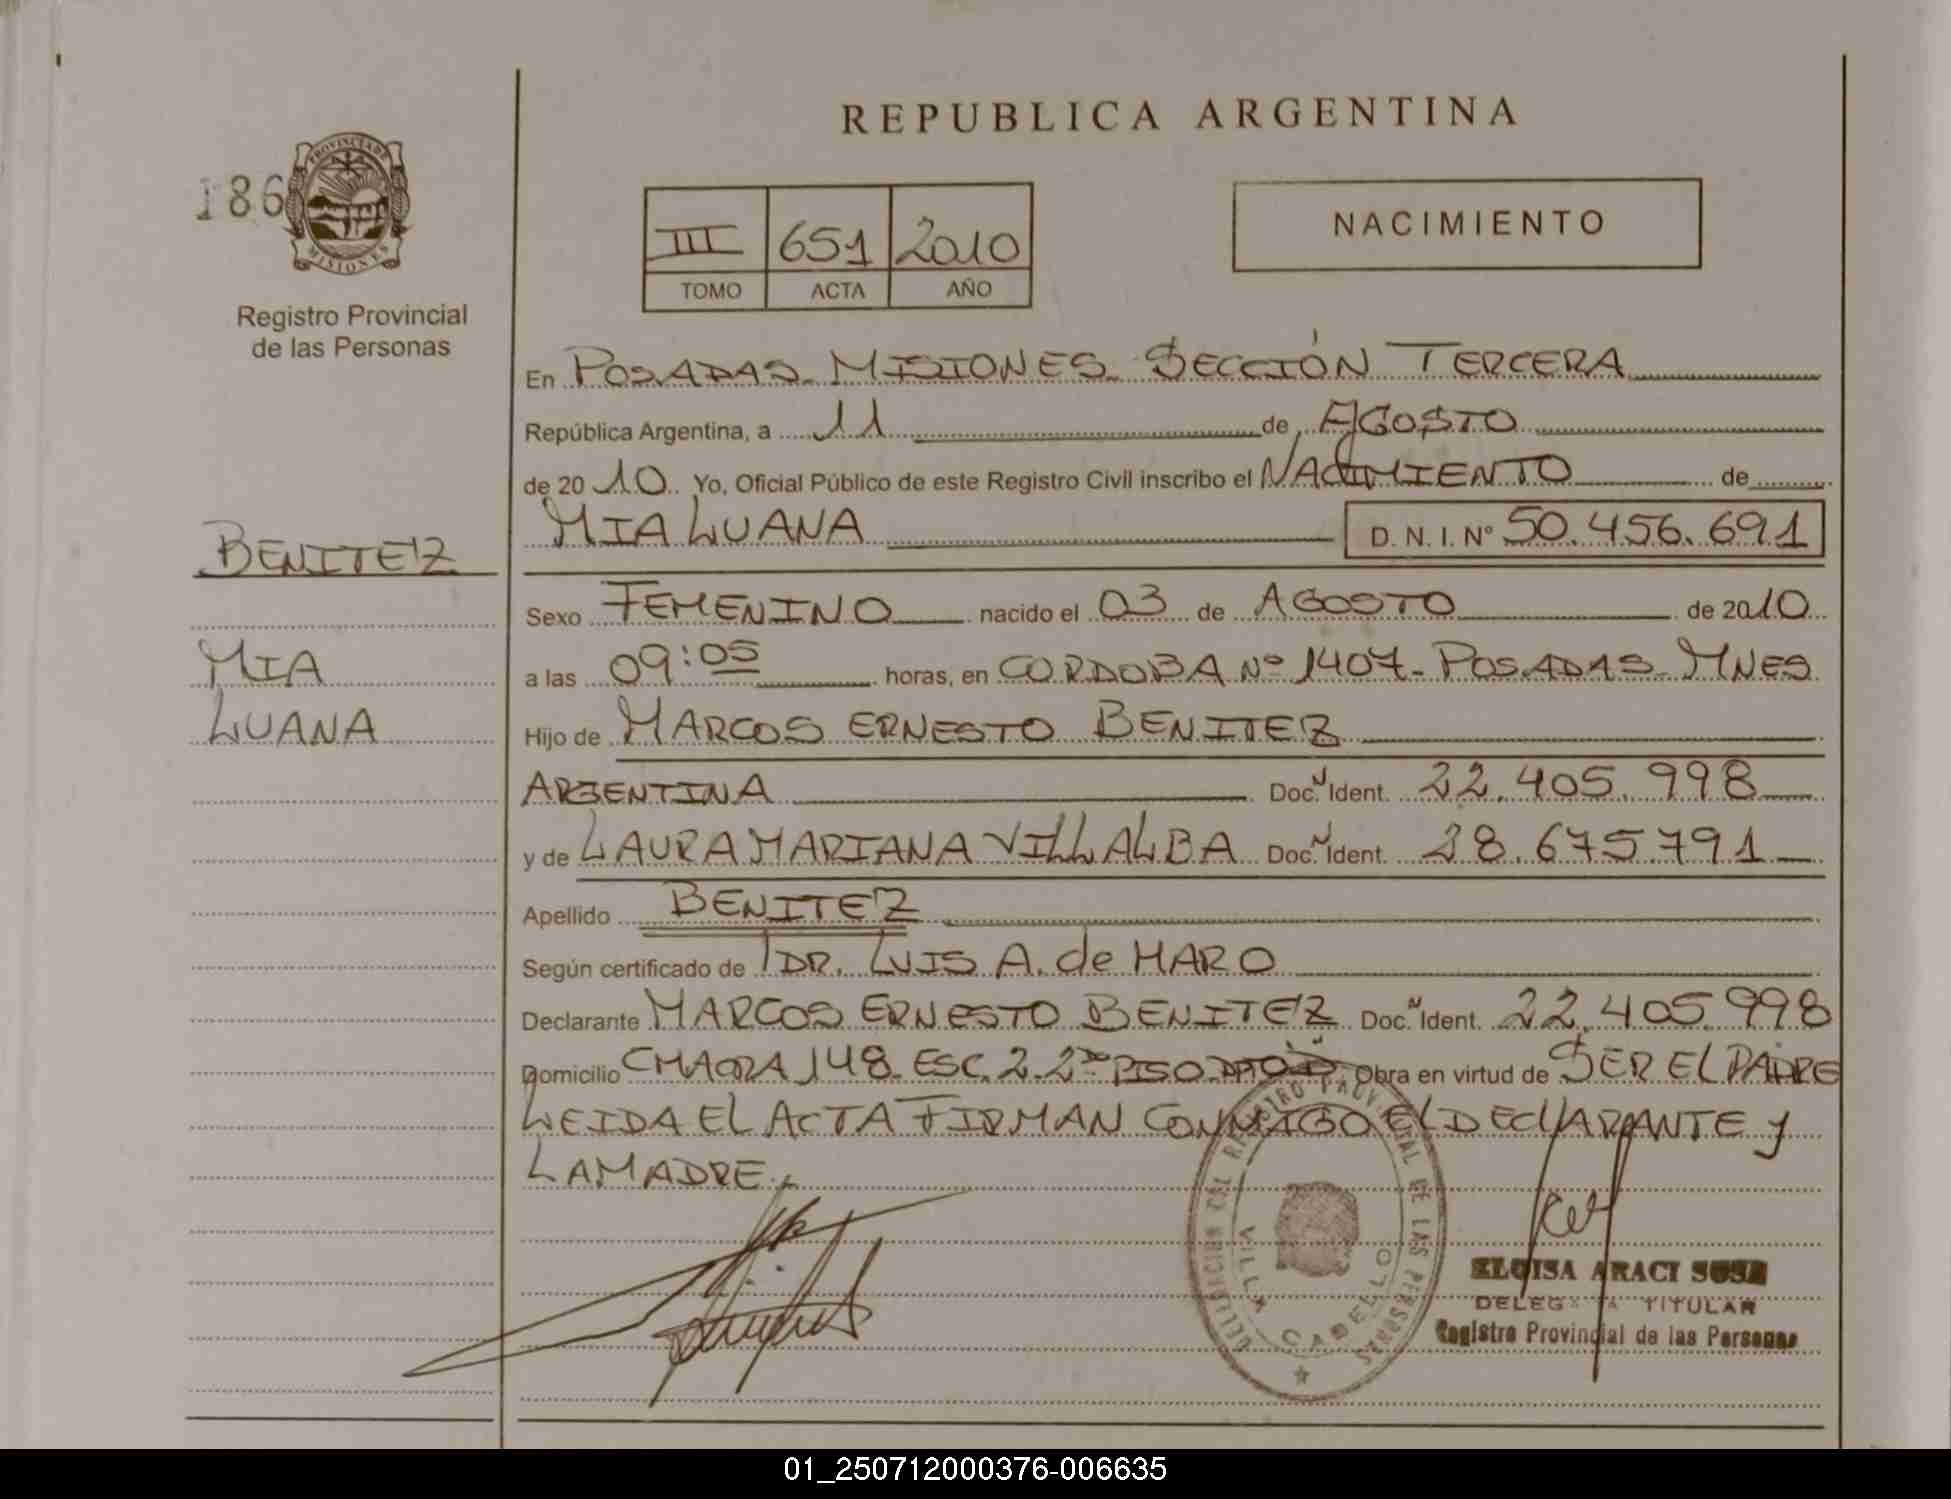 REPUBLICA ARGENTINA
186
PROVINCIA DE
MISIONES
Registro Provincial
de las Personas
III 651 2010
TOMO ACTA AÑO
NACIMIENTO
En POSADAS MISIONES SECCIÓN TERCERA
República Argentina, a 11 de AGOSTO
de 2010 Yo, Oficial Público de este Registro Civil inscribo el NACIMIENTO de
MIA LUANA D. N. I. Nº 50.456.691
BENITEZ
MIA
LUANA
Sexo FEMENINO nacido el 03 de AGOSTO de 2010
a las 09:05 horas, en CORDOBA Nº 1407- POSADAS MNES
Hijo de MARCOS ERNESTO BENITEZ
ARGENTINA Doc. Ident. 22.405.998
y de LAURA MARIANA VILLALBA Doc. Ident. 28.675.791
Apellido BENITEZ
Según certificado de DR. LUIS A. de HARO
Declarante MARCOS ERNESTO BENITEZ Doc. Ident. 22.405.998
Domicilio CHACRA 148 ESC. 2 2º PISO DPTO D Obra en virtud de SER EL PADRE
LEIDA EL ACTA FIRMAN CONMIGO EL DECLARANTE y
LA MADRE.
DELEGACION DEL REGISTRO PROVINCIAL DE LAS PERSONAS
VILLA CABELLO
ELOISA ARACI SOSA
DELEGADA TITULAR
Registro Provincial de las Personas
01_250712000376-006635